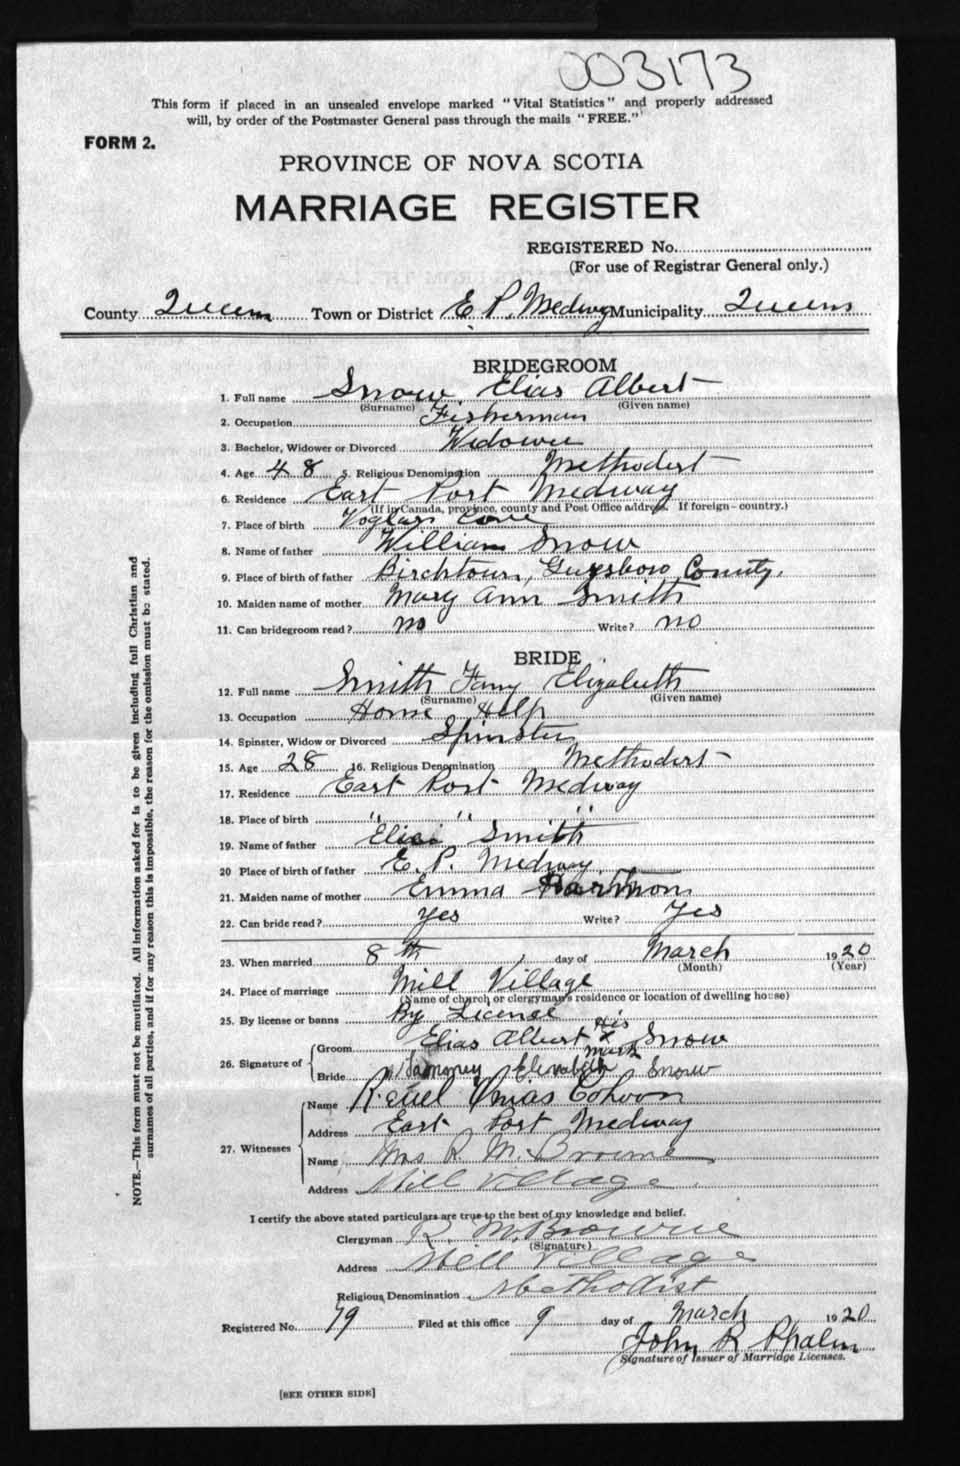 003173
This form if placed in an unsealed envelope marked "Vital Statistics" and properly addressed
will, by order of the Postmaster General pass through the mails "FREE."
FORM 2.
PROVINCE OF NOVA SCOTIA
MARRIAGE REGISTER
REGISTERED No.
(For use of Registrar General only.)
County Queens Town or District E. P. Medway Municipality Queens
BRIDEGROOM
1. Full name Snow Elias Albert
(Surname) (Given name)
2. Occupation Fisherman
3. Bachelor, Widower or Divorced Widower
4. Age 48 5. Religious Denomination Methodist
6. Residence East Port Medway
(If in Canada, province, county and Post Office address. If foreign - country.)
7. Place of birth Voglars Cove
8. Name of father William Snow
9. Place of birth of father Birchtown, Guysboro County.
10. Maiden name of mother Mary Ann Smith
11. Can bridegroom read? no Write? no
BRIDE
12. Full name Smith Fany Elizabeth
(Surname) (Given name)
13. Occupation Home Help
14. Spinster, Widow or Divorced Spinster
15. Age 28 16. Religious Denomination Methodist
17. Residence East Port Medway
18. Place of birth " " "
19. Name of father Smith
20 Place of birth of father E. P. Medway
21. Maiden name of mother Emma
22. Can bride read? yes Write? Yes
23. When married 8th day of March 1920
(Month) (Year)
24. Place of marriage Mill Village
(Name of church or clergyman's residence or location of dwelling house)
25. By license or banns By License
26. Signature of Groom Elias Albert his x mark Snow
Bride Elizabeth Snow
27. Witnesses Name Cohoon
Address East Port Medway
Name Mrs R. M. Browne
Address Mill Village
I certify the above stated particulars are true to the best of my knowledge and belief.
Clergyman R. M. Browne
(Signature)
Address Mill Village
Religious Denomination Methodist
Registered No. 79 Filed at this office 9 day of March 1920
John R Phalen
Signature of Issuer of Marriage Licenses.
[SEE OTHER SIDE]
NOTE.—This form must not be mutilated. All information asked for is to be given including full Christian and
surnames of all parties, and if for any reason this is impossible, the reason for the omission must be stated.